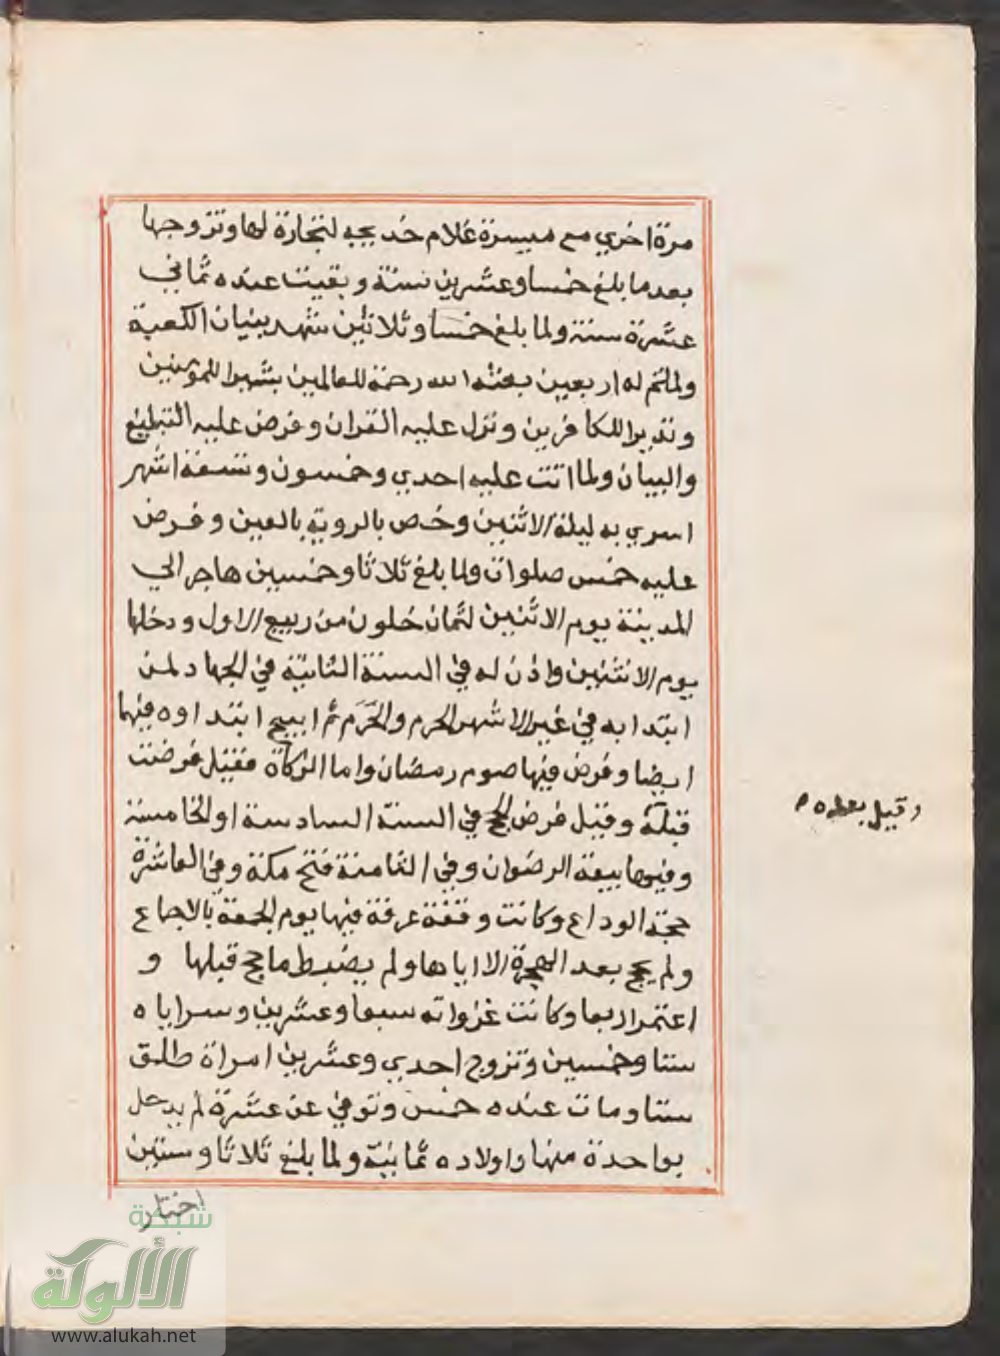 مرة اخري مع ميسرة غلام خديجه لتجارة لها وتزوجها
بعد ما بلغ خمسا وعشرين سنة وبقيت عنده ثماني
عشرة سنة ولما بلغ خمسا وثلاثين شهد بنيان الكعبة
ولما تم له اربعين بعثه الله رحمة للعالمين بشيرا للمؤمنين
ونذيرا للكافرين ونزل عليه القران وفرض عليه التبليغ
والبيان ولما اتت عليه احدي وخمسون وتسعة اشهر
اسري به ليلة الاثنين وخص بالروية بالعين وفرض
عليه خمس صلوات ولما بلغ ثلاثا وخمسين هاجر الي
المدينة يوم الاثنين لثمان خلون من ربيع الاول ودخلها
يوم الاثنين واذن له في السنة الثانية في الجهاد لمن
ابتدا به في غير الاشهر الحرم والحرم ثم ابيح ابتداوه فيها
ايضا وفرض فيها صوم رمضان واما الزكاة فقيل فرضت
قبله وقيل فرض الحج في السنة السادسة او الخامسة
وقيل بعده
وفيها بيعة الرضوان وفي الثامنة فتح مكة وفي العاشرة
حجة الوداع وكانت وقفة عرفة فيها يوم الجمعة بالاجماع
ولم يحج بعد الهجرة الا اياها ولم يضبط ما حج قبلها و
اعتمر اربعا وكانت غزواته سبعا وعشرين وسراياه
ستا وخمسين وتزوج احدي وعشرين امراة طلق
ستا ومات عنده خمس وتوفي عن عشرة لم يدخل
بواحدة منها واولاده ثمانية ولما بلغ ثلاثا وستين
اختار
شبكة
الألوكة
www.alukah.net